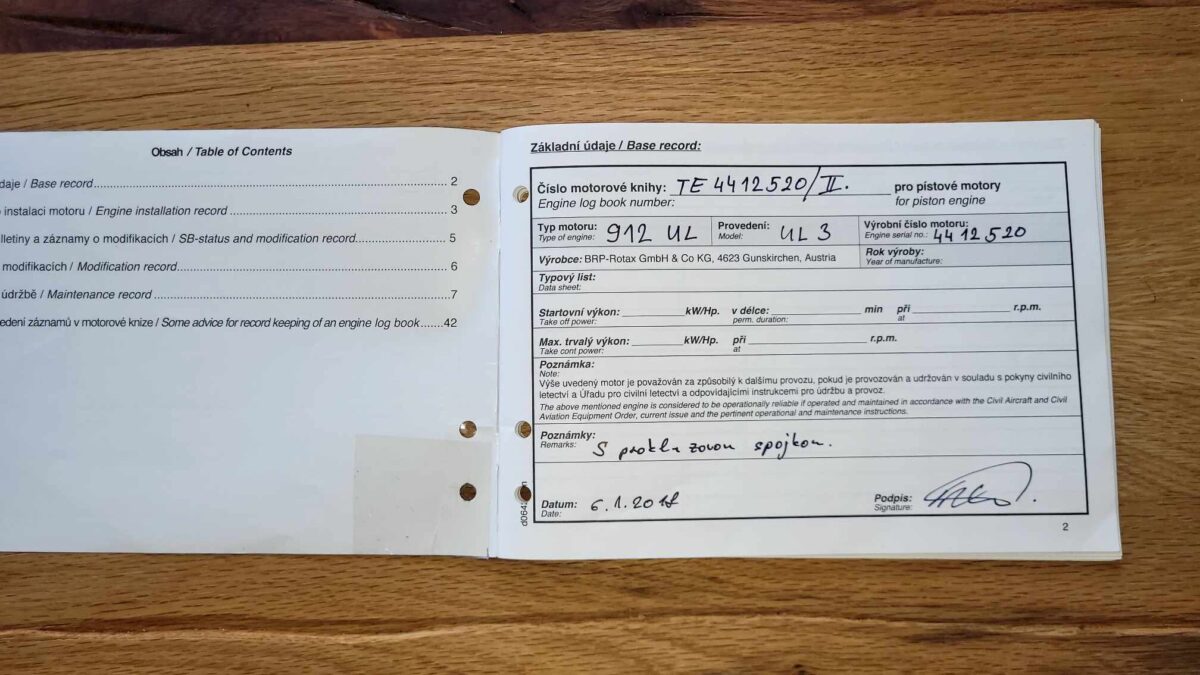 Obsah / Table of Contents
daje / Base record 2
o instalaci motoru / Engine installation record 3
lletiny a záznamy o modifikacích / SB-status and modification record 5
modifikacích / Modification record 6
údržbě / Maintenance record 7
edení záznamů v motorové knize / Some advice for record keeping of an engine log book 42
Základní údaje / Base record:
Číslo motorové knihy: TE 4412520/II. pro pístové motory
Engine log book number: for piston engine
Typ motoru: 912 UL Provedení: UL 3 Výrobní číslo motoru: 4412520
Type of engine: Model: Engine serial no.:
Výrobce: BRP-Rotax GmbH & Co KG, 4623 Gunskirchen, Austria Rok výroby:
Year of manufacture:
Typový list:
Data sheet:
Startovní výkon: kW/Hp. v délce: min při r.p.m.
Take off power: perm. duration: at
Max. trvalý výkon: kW/Hp. při r.p.m.
Take cont power: at
Poznámka:
Note:
Výše uvedený motor je považován za způsobilý k dalšímu provozu, pokud je provozován a udržován v souladu s pokyny civilního
letectví a Úřadu pro civilní letectví a odpovídajícími instrukcemi pro údržbu a provoz.
The above mentioned engine is considered to be operationally reliable if operated and maintained in accordance with the Civil Aircraft and Civil
Aviation Equipment Order, current issue and the pertinent operational and maintenance instructions.
Poznámky:
Remarks: S prokluzovou spojkou.
Datum: 6.1.20 Podpis:
Date: Signature:
2